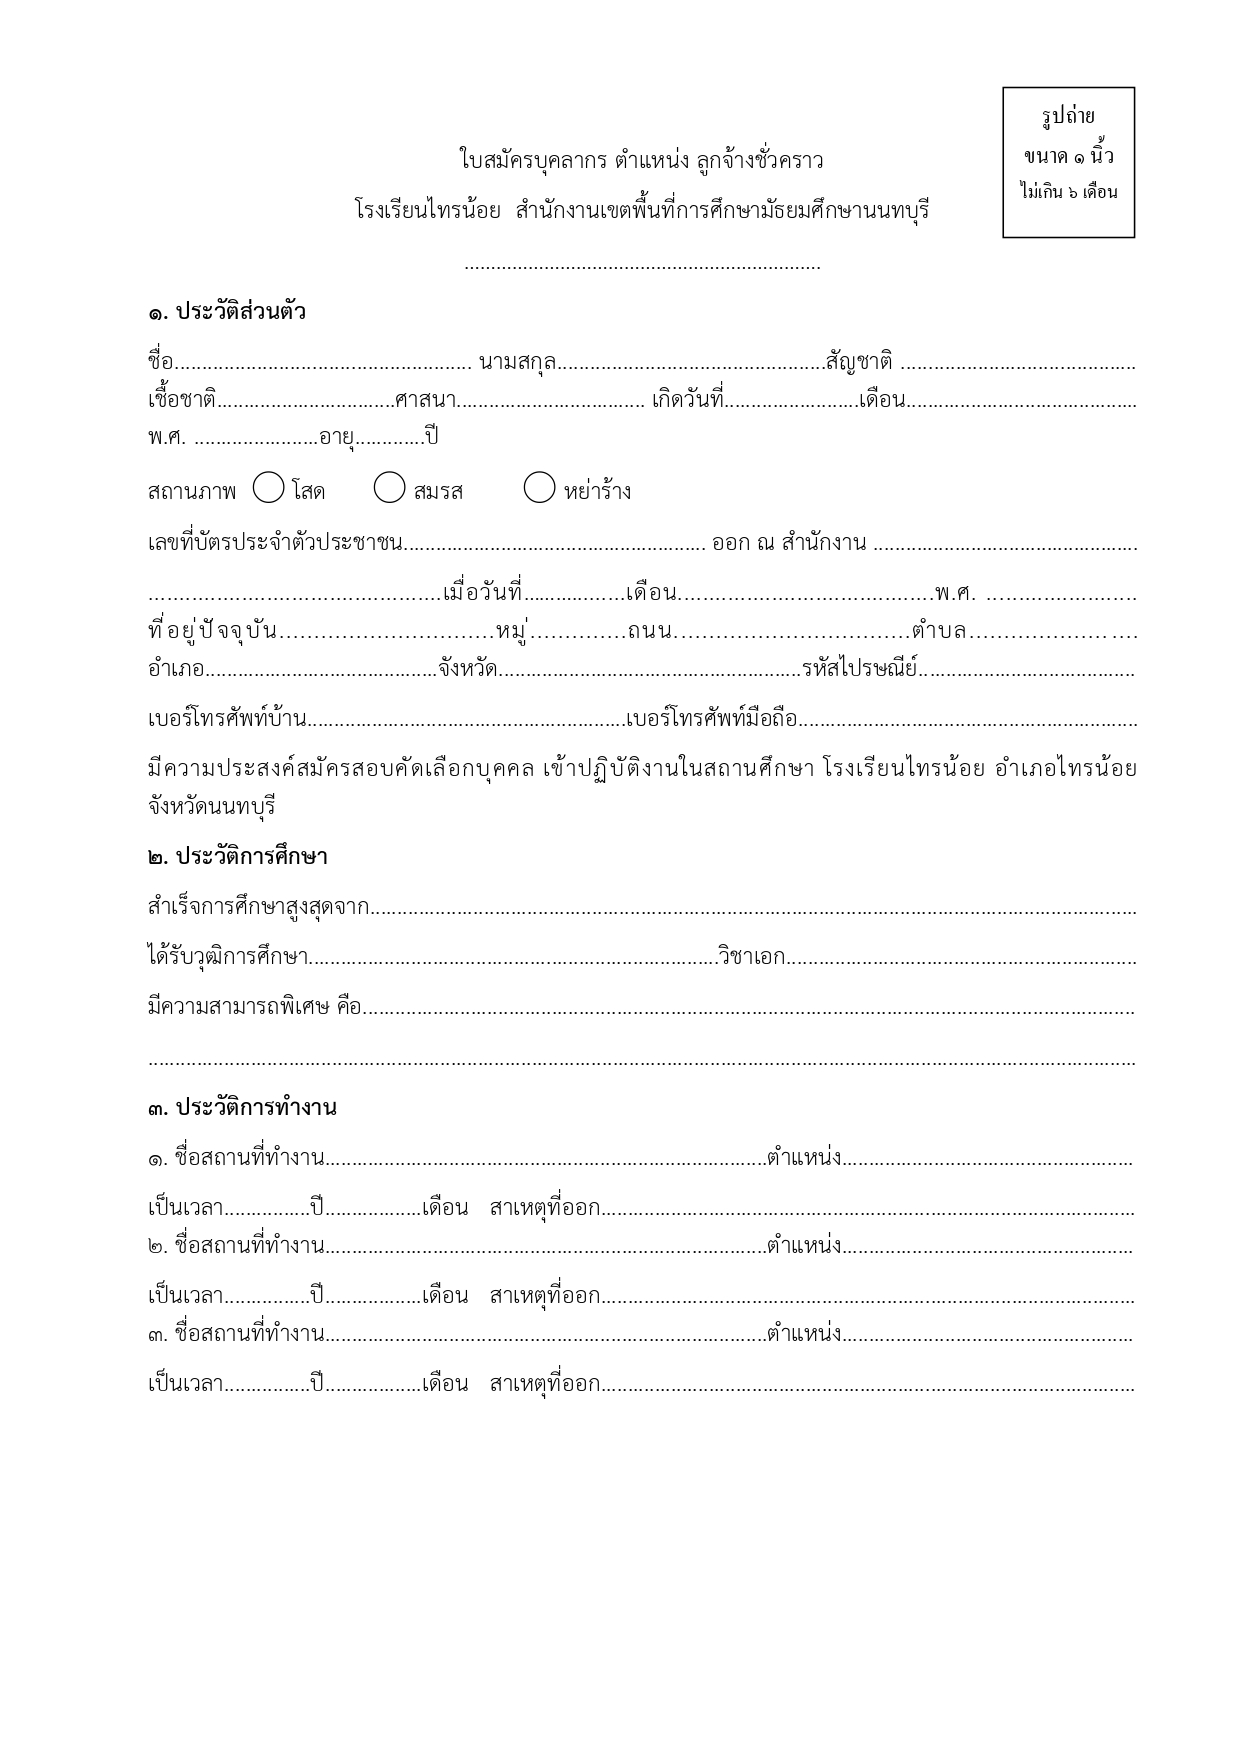 รูปถ่าย
ขนาด ๑ นิ้ว
ไม่เกิน ๖ เดือน
ใบสมัครบุคลากร ตำแหน่ง ลูกจ้างชั่วคราว
โรงเรียนไทรน้อย สำนักงานเขตพื้นที่การศึกษามัธยมศึกษานนทบุรี
..................................................................
๑. ประวัติส่วนตัว
ชื่อ....................................................... นามสกุล..................................................สัญชาติ ............................................
เชื้อชาติ.................................ศาสนา................................... เกิดวันที่.........................เดือน...........................................
พ.ศ. .......................อายุ.............ปี
สถานภาพ ◯ โสด ◯ สมรส ◯ หย่าร้าง
เลขที่บัตรประจำตัวประชาชน........................................................ ออก ณ สำนักงาน .................................................
................................................เมื่อวันที่...................เดือน..........................................พ.ศ. .........................
ที่อยู่ปัจจุบัน...............................หมู่..............ถนน..................................ตำบล........................
อำเภอ...........................................จังหวัด........................................................รหัสไปรษณีย์........................................
เบอร์โทรศัพท์บ้าน...........................................................เบอร์โทรศัพท์มือถือ...............................................................
มีความประสงค์สมัครสอบคัดเลือกบุคคล เข้าปฏิบัติงานในสถานศึกษา โรงเรียนไทรน้อย อำเภอไทรน้อย
จังหวัดนนทบุรี
๒. ประวัติการศึกษา
สำเร็จการศึกษาสูงสุดจาก..............................................................................................................................................
ได้รับวุฒิการศึกษา............................................................................วิชาเอก.................................................................
มีความสามารถพิเศษ คือ...............................................................................................................................................
.......................................................................................................................................................................................
๓. ประวัติการทำงาน
๑. ชื่อสถานที่ทำงาน..................................................................................ตำแหน่ง......................................................
เป็นเวลา................ปี..................เดือน สาเหตุที่ออก...................................................................................................
๒. ชื่อสถานที่ทำงาน..................................................................................ตำแหน่ง......................................................
เป็นเวลา................ปี..................เดือน สาเหตุที่ออก...................................................................................................
๓. ชื่อสถานที่ทำงาน..................................................................................ตำแหน่ง......................................................
เป็นเวลา................ปี..................เดือน สาเหตุที่ออก...................................................................................................